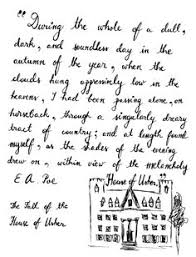 "During the whole of a dull,
dark, and soundless day in the
autumn of the year, when the
clouds hung oppressively low in the
heavens, I had been passing alone, on
horseback, through a singularly dreary
tract of country; and at length found
myself, as the shades of the evening
drew on, within view of the melancholy
House of Usher"
E. A. Poe
The Fall of the
House of Usher